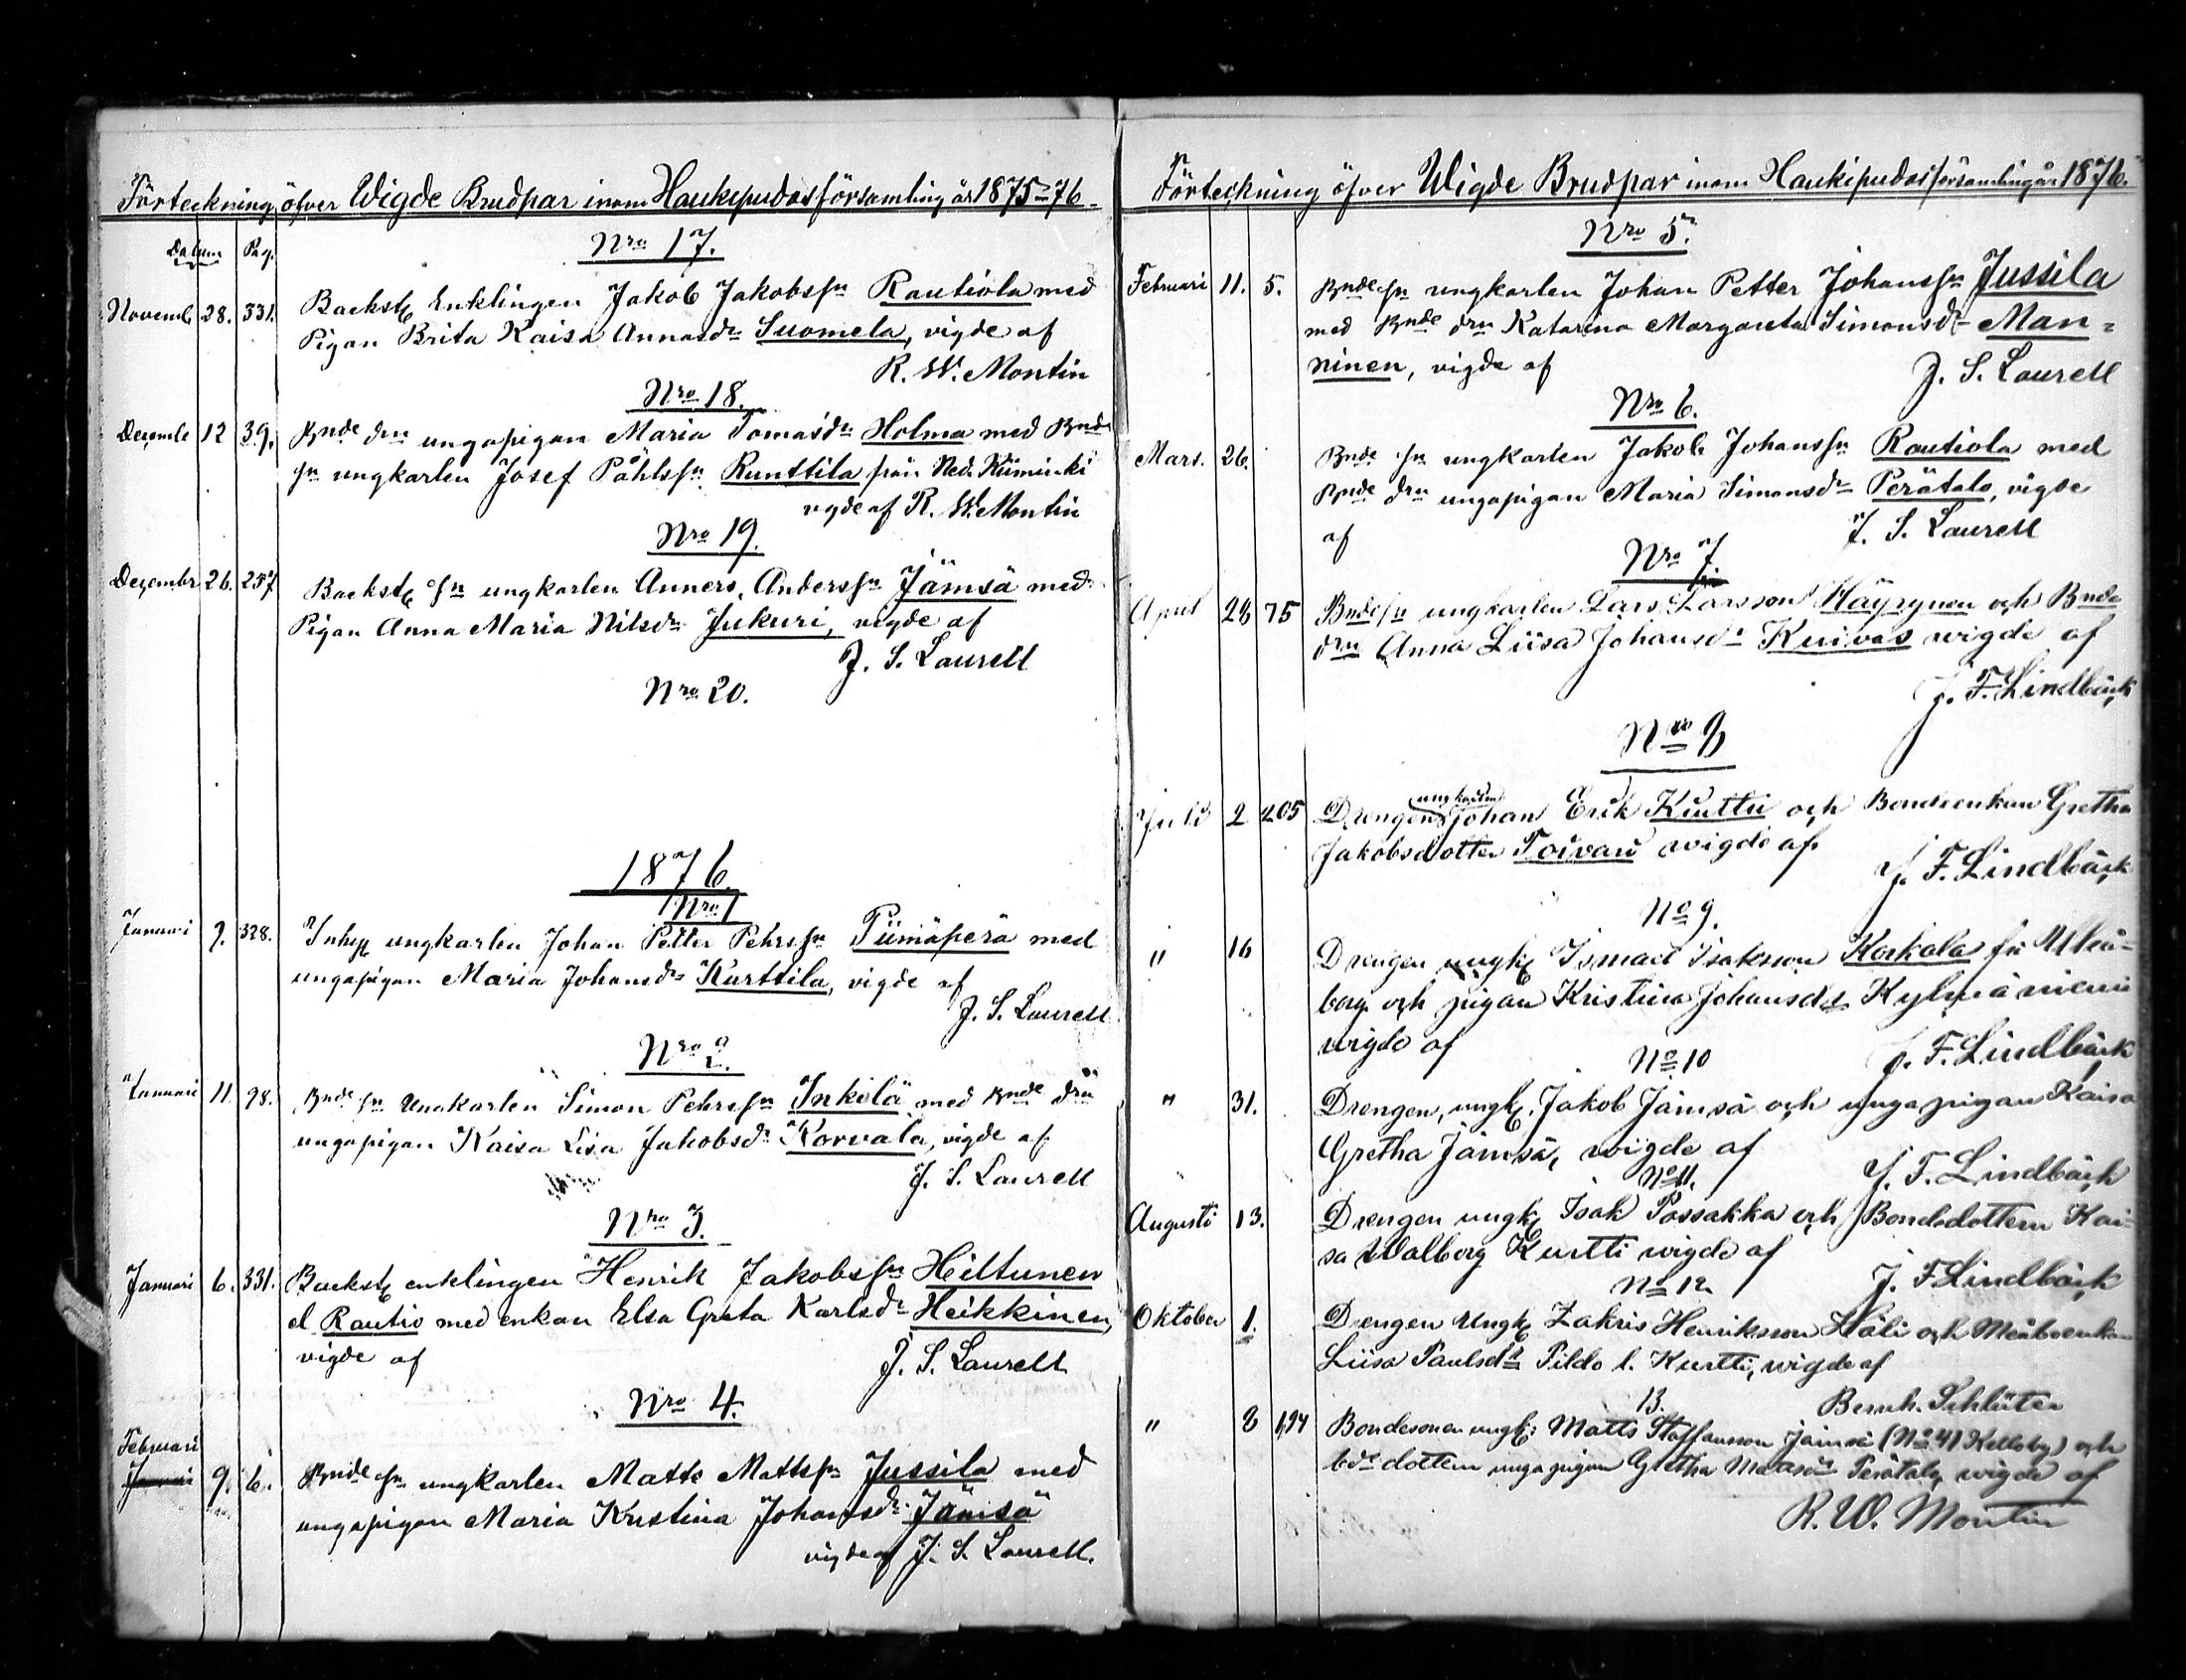 Förteckning öfver Wigde Brudpar inom Haukipudas församling år 1875-76
Datum Pag.
Nro 17.
Novemb. 28. 331. Backst. Enklingen Jakob Jakobssn Rautiola med
Pigan Brita Kaisa Annasdr Suomela, vigde af
R. W. Montin
Nro 18.
Decemb 12 39. Bnde drn ungapigan Maria Tomasdr Holma med Bnde
sn ungkarlen Josef Påhlssn Runttila från Ned. Kiiminki
vigde af R. W. Montin
Nro 19.
Decembr 26. 257 Backst. sn ungkarlen Anners Anderssn Jämsä med
Pigan Anna Maria Nilsdr Jukuri, vigde af
J. S. Laurell
Nro 20.
1876.
Nro 1
Januari 9. 328. Inhy. ungkarlen Johan Petter Pehrssn Piimäperä med
ungapigan Maria Johansdr Kurttila, vigde af
J. S. Laurell
Nro 2.
Januari 11. 98. Bnde sn Ungkarlen Simon Pehrssn Inkilä med Bnde drn
ungapigan Kaisa Lisa Jakobsdr Korvala, vigde af
J. S. Laurell
Nro 3.
Januari 6. 331. Backst. enklingen Henrik Jakobssn Hiltunen
el. Rautio med enkan Elsa Greta Karlsdr Heikkinen,
vigde af J. S. Laurell
Nro 4.
Februari
9. 6. Bnde sn ungkarlen Matts Mattssn Jussila med
ungapigan Maria Kristina Johansdr Jämsä
vigde af J. S. Laurell.
Förteckning öfver Wigde Brudpar inom Haukipudas församling år 1876.
Nro 5.
Februari 11. 5. Bnde sn ungkarlen Johan Petter Johanssn Jussila
med Bnde drn Katarina Margareta Simonsdr Man=
ninen, vigde af J. S. Laurell
Nro 6.
Mars. 26. Bnde sn ungkarlen Jakob Johanssn Rautiola med
Bnde drn ungapigan Maria Simonsdr Perätalo, vigde
af J. S. Laurell
Nro 7.
April 28 75 Bnde sn ungkarlen Lars Larsson Häyrynen och Bnde
drn Anna Liisa Johansdr Kuivas wigde af
J. F. Lindbäck
Nro 8
Juli 2 205 Drengen ungkarlen Johan Erik Kurtti och Bondeenkan Gretha
Jakobsdotter Toivari wigde af
J. F. Lindbäck
No 9.
" 16 Drengen ungk. Ismael Isaksson Koskala fr. Uleå-
borg och pigan Kristina Johansdr Kylmäniemi
wigde af J. F. Lindbäck
No 10
" 31. Drengen, ungk. Jakob Jämsä och ungapigan Kaisa
Gretha Jämsä, wigde af
J. F. Lindbäck
No 11.
Augusti 13. Drengen ungk. Isak Passakka och Bondedottern Kai-
sa Walborg Kurtti wigde af
J. F. Lindbäck
No 12
Oktober 1. Drengen Ungk. Zakris Henriksson Häli och
Liisa Paulsdr Pildo l. Kurtti, wigde af
Bernh. Schlüter
13.
" 8 194 Bondesonen ungk. Matts Staffansson Jämsä (No 41 Kelloby) och
bde dottern ungapigan Gretha Perätalo, wigde af
R. W. Montin